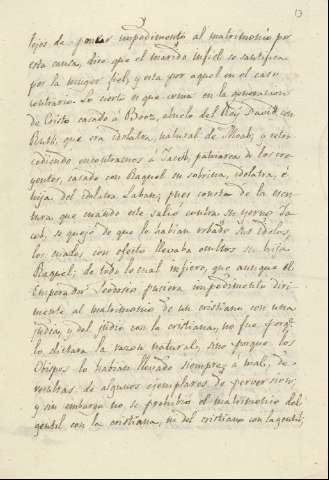 13
lejos de poner impedimento al matrimonio por
esta causa, dice que el marido infiel se santifica
por la muger fiel, y esta por aquel en el caso
contrario. Lo cierto es que como en la generacion
de Cristo casado á Booz, abuelo del Rey David, con
Ruth, que era idolatra, natural de Moab; y retro
cediendo encontramos á Jacob, patriarca de los cre
yentes, casado con Raquel su sobrina, idolatra, é
hija del idolatra Laban; pues consta de la escri
tura que cuando este salió contra su yerno Ja
cob, se quejó de que le habian robado sus idolos,
los cuales con efecto llevaba ocultos su hija
Raquel; de todo lo cual infiero, que aunque el
Emperador Teodosio pusiera impedimento diri
mente al matrimonio de un cristiano con una
judia, y del judio con la cristiana, no fue porqe
lo dictara la razon natural, sino porque los
Obispos lo habian llevado siempre á mal, de
resultas de algunos ejemplares de perversion,
y sin embargo no se prohibió el matrimonio del
gentil con la cristiana, ni del cristiano con la gentil;